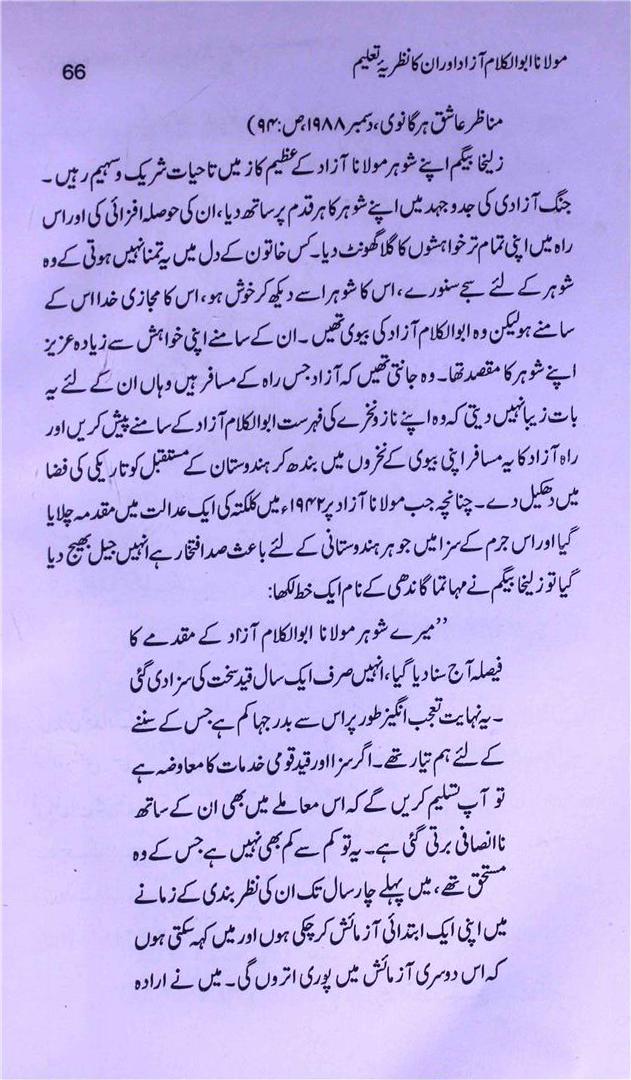 مولانا ابوالکلام آزاد اور ان کا نظریۂ تعلیم
66
مناظر عاشق ہرگانوی، دسمبر ۱۹۸۸، ص: ۹۴)
زلیخا بیگم اپنے شوہر مولانا آزاد کے عظیم کاز میں تاحیات شریک و سہیم رہیں۔
جنگ آزادی کی جدوجہد میں اپنے شوہر کا ہر قدم پر ساتھ دیا، ان کی حوصلہ افزائی کی اور اس
راہ میں اپنی تمام تر خواہشوں کا گلا گھونٹ دیا۔ کس خاتون کے دل میں یہ تمنا نہیں ہوتی کے وہ
شوہر کے لئے سجے سنورے، اس کا شوہر اسے دیکھ کر خوش ہو، اس کا مجازی خدا اس کے
سامنے ہو لیکن وہ ابوالکلام آزاد کی بیوی تھیں۔ ان کے سامنے اپنی خواہش سے زیادہ عزیز
اپنے شوہر کا مقصد تھا۔ وہ جانتی تھیں کہ آزاد جس راہ کے مسافر ہیں وہاں ان کے لئے یہ
بات زیبا نہیں دیتی کہ وہ اپنے ناز و نخرے کی فہرست ابوالکلام آزاد کے سامنے پیش کریں اور
راہ آزاد کا یہ مسافر اپنی بیوی کے نخروں میں بندھ کر ہندوستان کے مستقبل کو تاریکی کی فضا
میں دھکیل دے۔ چنانچہ جب مولانا آزاد پر ۱۹۴۲ء میں کلکتہ کی ایک عدالت میں مقدمہ چلایا
گیا اور اس جرم کے سزا میں جو ہر ہندوستانی کے لئے باعث صد افتخار ہے انہیں جیل بھیج دیا
گیا تو زلیخا بیگم نے مہاتما گاندھی کے نام ایک خط لکھا:
”میرے شوہر مولانا ابوالکلام آزاد کے مقدمے کا
فیصلہ آج سنا دیا گیا، انہیں صرف ایک سال قید سخت کی سزا دی گئی
۔ یہ نہایت تعجب انگیز طور پر اس سے بدرجہا کم ہے جس کے سننے
کے لئے ہم تیار تھے۔ اگر سزا اور قید قومی خدمات کا معاوضہ ہے
تو آپ تسلیم کریں گے کہ اس معاملے میں بھی ان کے ساتھ
ناانصافی برتی گئی ہے۔ یہ تو کم سے کم بھی نہیں ہے جس کے وہ
مستحق تھے، میں پہلے چار سال تک ان کی نظر بندی کے زمانے
میں اپنی ایک ابتدائی آزمائش کر چکی ہوں اور میں کہہ سکتی ہوں
کہ اس دوسری آزمائش میں پوری اتروں گی۔ میں نے ارادہ